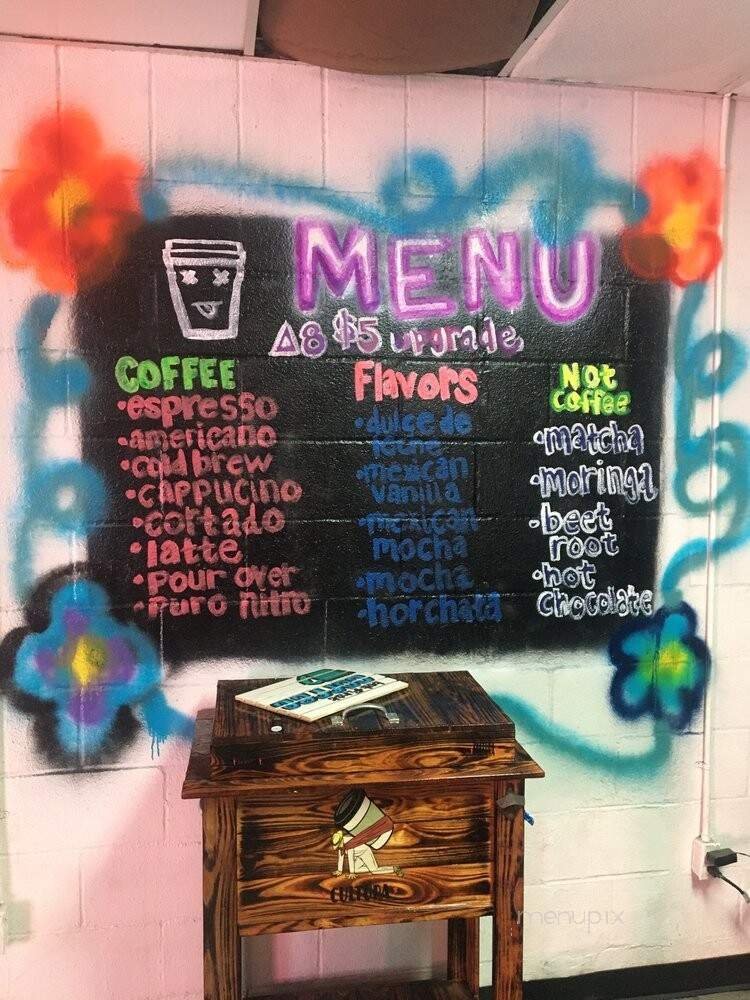 MENU
Δ8 $5 upgrade
COFFEE
•espresso
•americano
•cold brew
•cappucino
•cortado
•latte
•pour over
•puro nitro
Flavors
•dulce de
leche
•mexican
vanilla
•mexican
mocha
•mocha
•horchata
Not
Coffee
•matcha
•moringa
•beet
root
•hot
chocolate
CULTURA
menupix